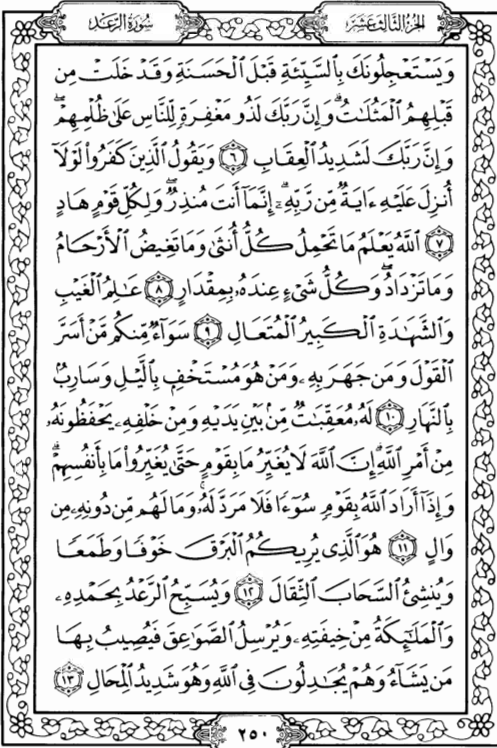 الجزء الثالث عشر
سورة الرعد
وَيَسْتَعْجِلُونَكَ بِالسَّيِّئَةِ قَبْلَ الْحَسَنَةِ وَقَدْ خَلَتْ مِن
قَبْلِهِمُ الْمَثُلَاتُ ۗ وَإِنَّ رَبَّكَ لَذُو مَغْفِرَةٍ لِّلنَّاسِ عَلَىٰ ظُلْمِهِمْ ۖ
وَإِنَّ رَبَّكَ لَشَدِيدُ الْعِقَابِ ٦ وَيَقُولُ الَّذِينَ كَفَرُوا لَوْلَا
أُنزِلَ عَلَيْهِ ءَايَةٌ مِّن رَّبِّهِۦ ۗ إِنَّمَا أَنتَ مُنذِرٌ ۖ وَلِكُلِّ قَوْمٍ هَادٍ
٧ اللَّهُ يَعْلَمُ مَا تَحْمِلُ كُلُّ أُنثَىٰ وَمَا تَغِيضُ الْأَرْحَامُ
وَمَا تَزْدَادُ ۖ وَكُلُّ شَىْءٍ عِندَهُۥ بِمِقْدَارٍ ٨ عَـٰلِمُ الْغَيْبِ
وَالشَّهَـٰدَةِ الْكَبِيرُ الْمُتَعَالِ ٩ سَوَآءٌ مِّنكُم مَّنْ أَسَرَّ
الْقَوْلَ وَمَن جَهَرَ بِهِۦ وَمَنْ هُوَ مُسْتَخْفٍ بِالَّيْلِ وَسَارِبٌ
بِالنَّهَارِ ١٠ لَهُۥ مُعَقِّبَـٰتٌ مِّن بَيْنِ يَدَيْهِ وَمِنْ خَلْفِهِۦ يَحْفَظُونَهُۥ
مِنْ أَمْرِ اللَّهِ ۗ إِنَّ اللَّهَ لَا يُغَيِّرُ مَا بِقَوْمٍ حَتَّىٰ يُغَيِّرُوا مَا بِأَنفُسِهِمْ ۗ
وَإِذَا أَرَادَ اللَّهُ بِقَوْمٍ سُوٓءًا فَلَا مَرَدَّ لَهُۥ ۚ وَمَا لَهُم مِّن دُونِهِۦ مِن
وَالٍ ١١ هُوَ الَّذِى يُرِيكُمُ الْبَرْقَ خَوْفًا وَطَمَعًا
وَيُنشِئُ السَّحَابَ الثِّقَالَ ١٢ وَيُسَبِّحُ الرَّعْدُ بِحَمْدِهِۦ
وَالْمَلَـٰٓئِكَةُ مِنْ خِيفَتِهِۦ وَيُرْسِلُ الصَّوَٰعِقَ فَيُصِيبُ بِهَا
مَن يَشَآءُ وَهُمْ يُجَـٰدِلُونَ فِى اللَّهِ وَهُوَ شَدِيدُ الْمِحَالِ ١٣
٢٥٠